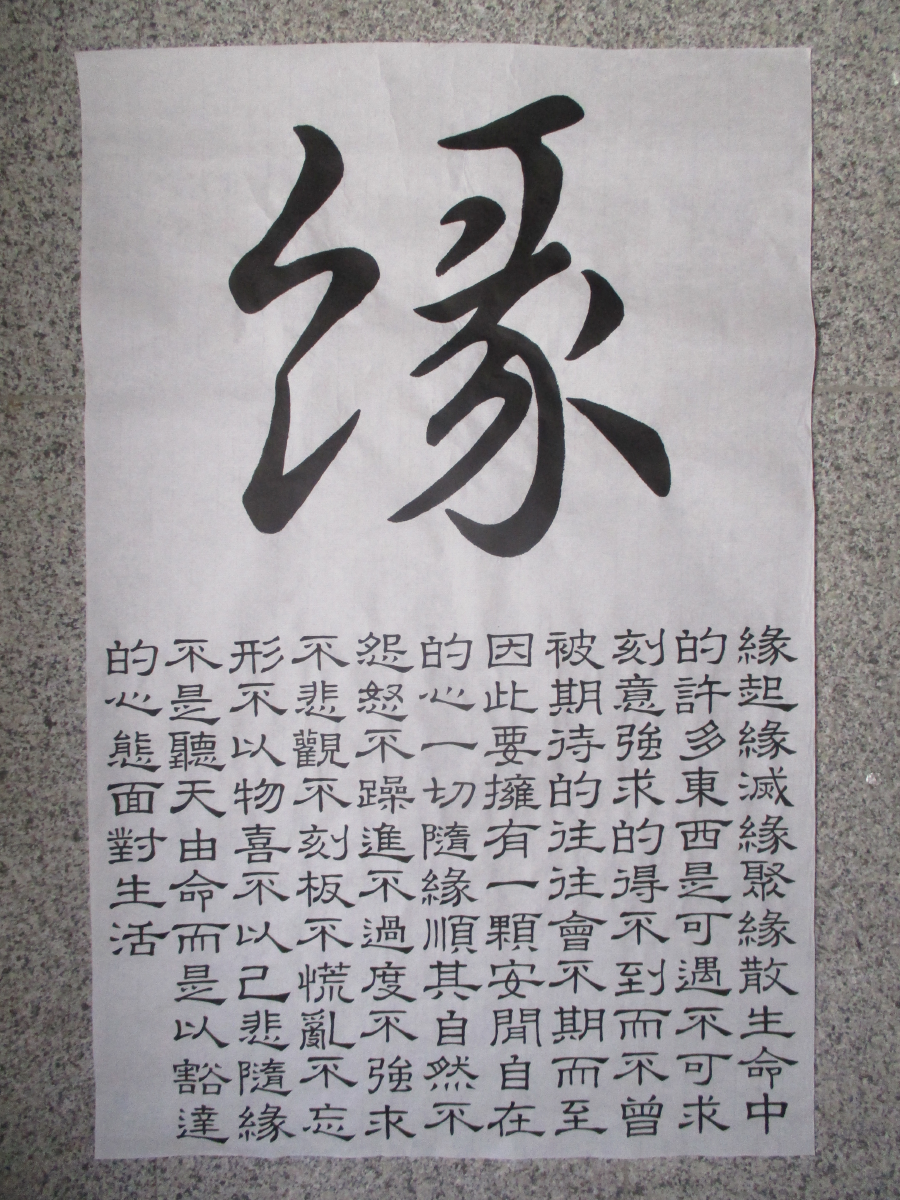 緣
緣起緣滅緣聚緣散生命中
的許多東西是可遇不可求
刻意強求的得不到而不曾
被期待的往往會不期而至
因此要擁有一顆安閒自在
的心一切隨緣順其自然不
怨怒不躁進不過度不強求
不悲觀不刻板不慌亂不忘
形不以物喜不以己悲隨緣
不是聽天由命而是以豁達
的心態面對生活